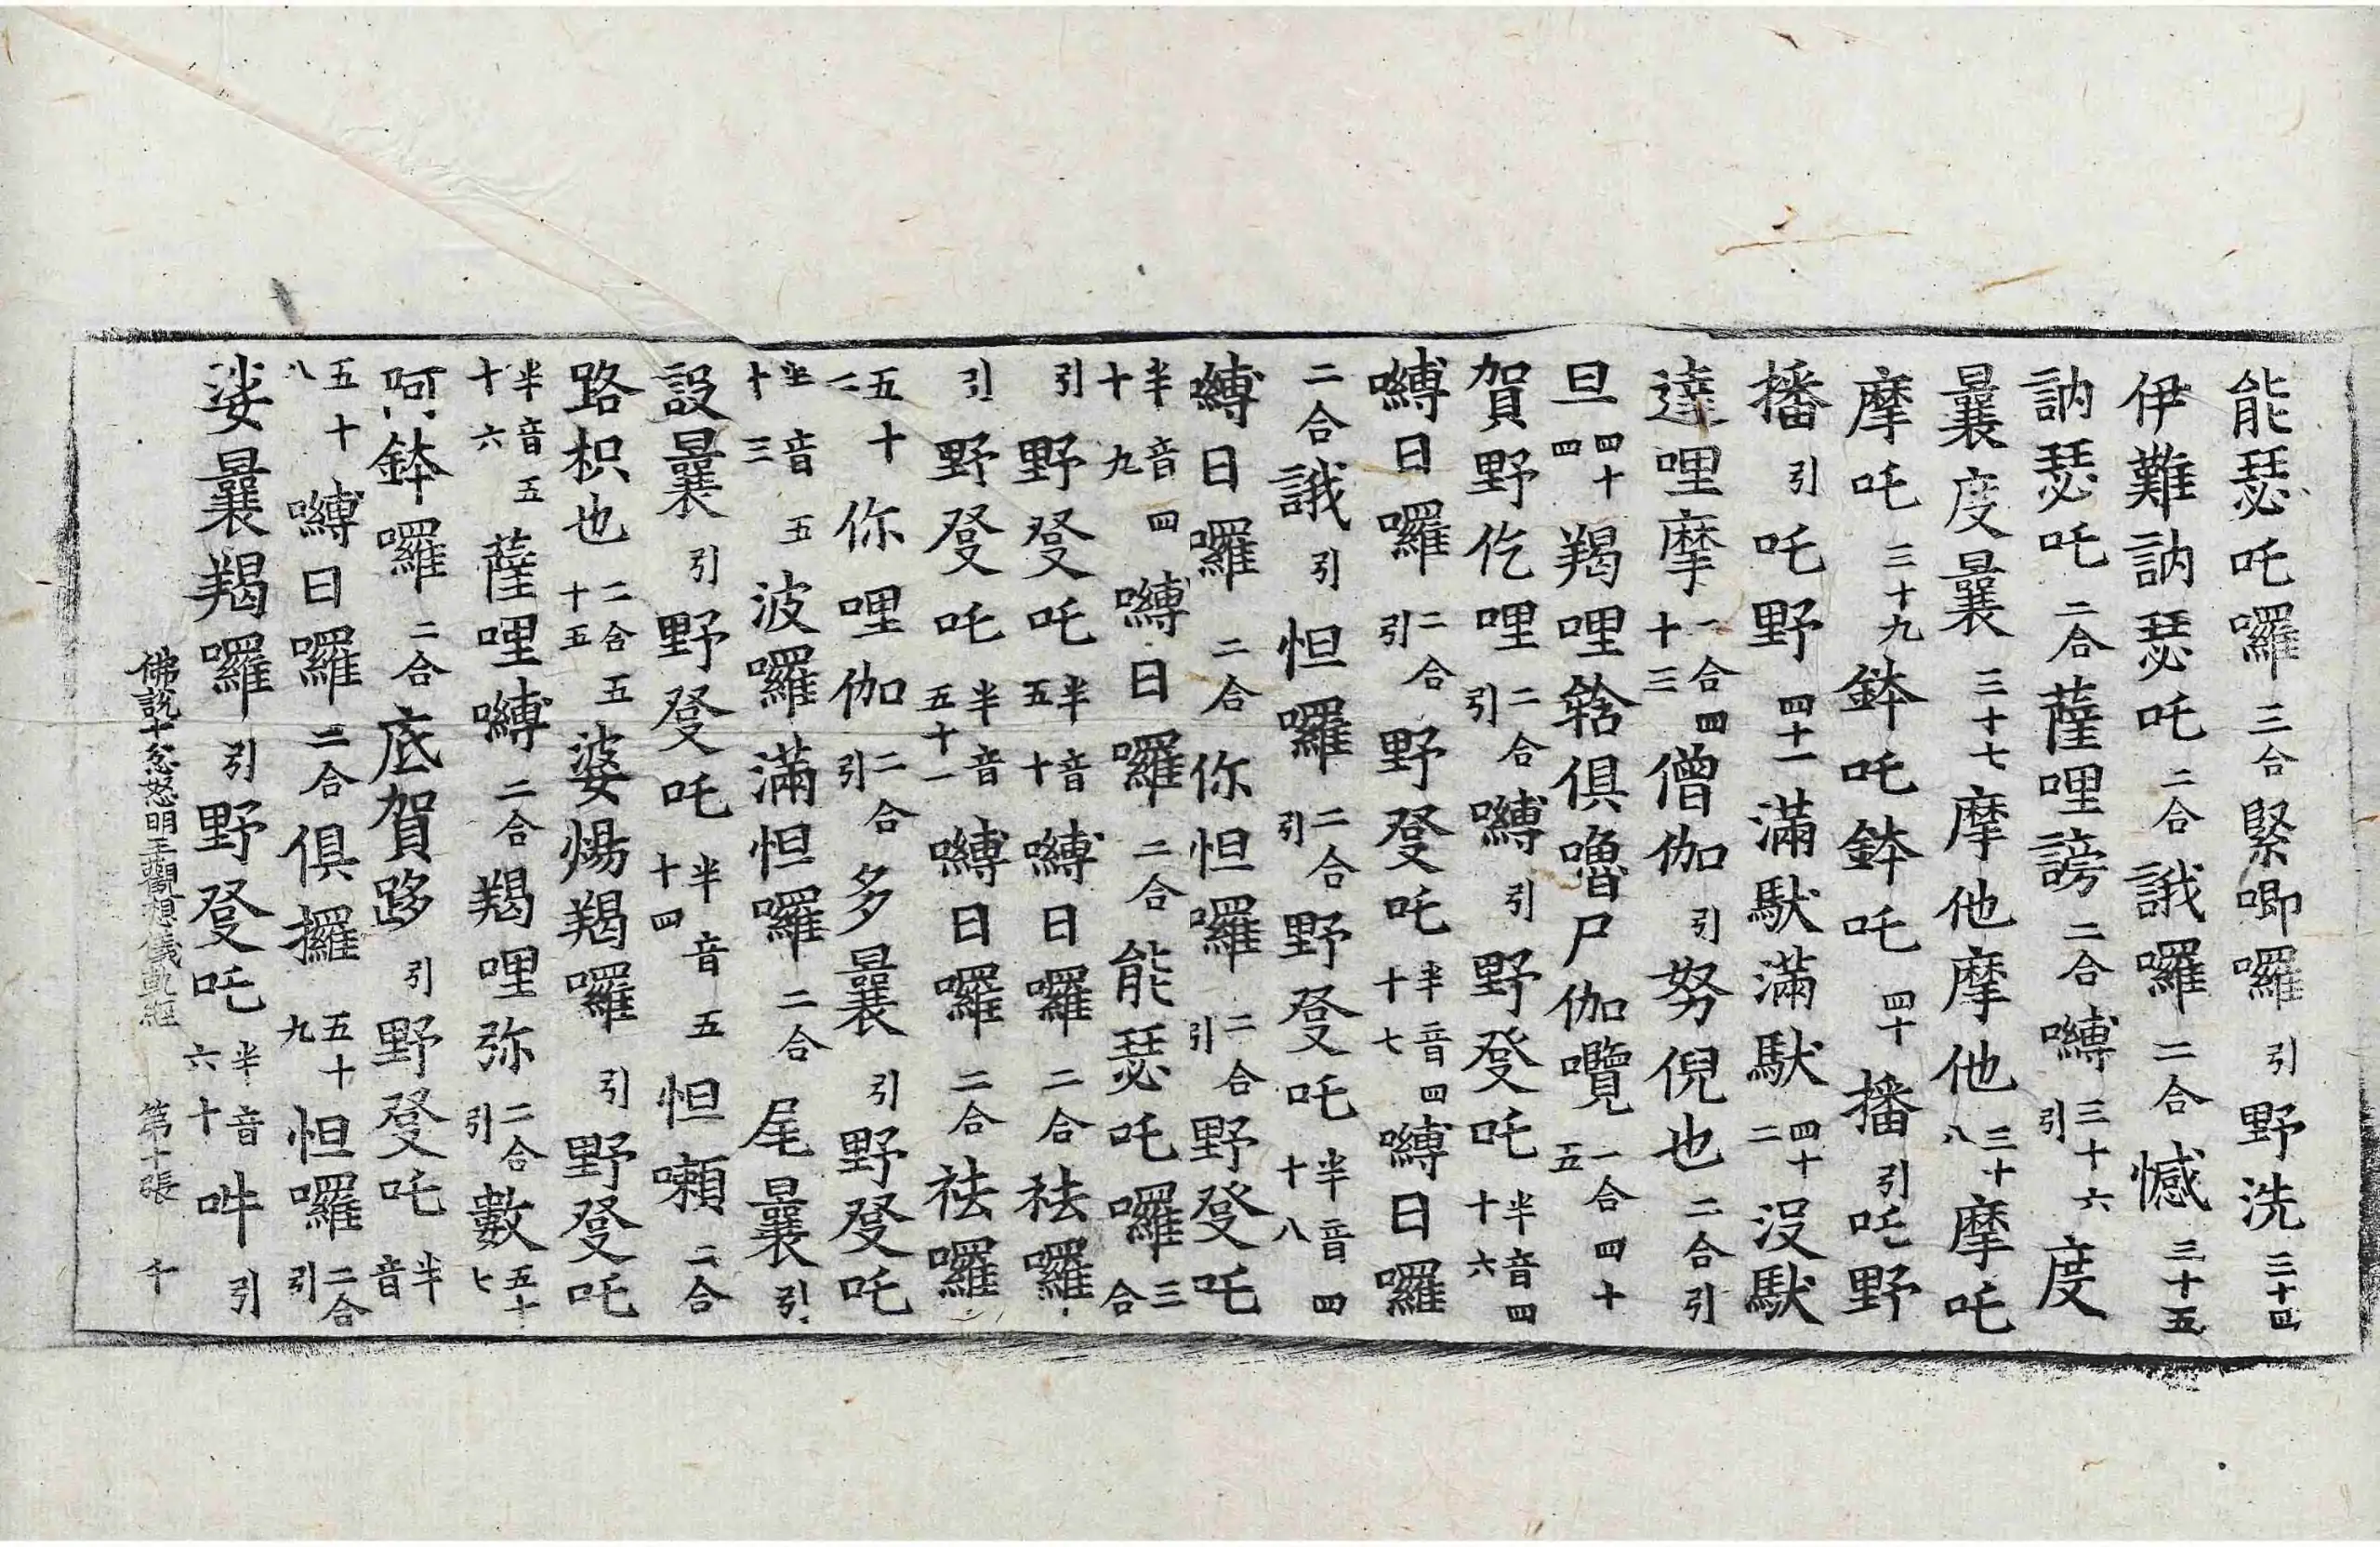 能瑟吒囉三合緊唧囉引野洗三十四
伊難訥瑟吒二合誐囉二合憾三十五
訥瑟吒二合薩哩謗二合嚩引三十六度
曩度曩三十七摩他摩他三十八摩吒
摩吒三十九鉢吒鉢吒四十播引吒野
播引吒野四十一滿馱滿馱四十二沒馱
達哩摩二合四十三僧伽引努倪也二合引
旦四十四羯哩䅁俱嚕尸伽囕二合四十五
賀野仡哩二合引嚩引野發吒半音四十六
嚩日囉二合引野發吒半音四十七嚩日囉
二合誐引怛囉二合引野發吒半音四十八
嚩日囉二合你怛囉二合引野發吒
半音四十九嚩日囉二合能瑟吒囉三合
引野發吒半音五十嚩日囉二合祛囉
引野發吒半音五十一嚩日囉二合祛囉
引野發吒半音
五十二你哩伽二合引多曩引野發吒
半音五十三波囉滿怛囉二合尾曩引
設曩引野發吒半音五十四怛囉二合
路枳也二合五十五婆煬羯囉引野發吒
半音五十六薩哩嚩二合羯哩弥二合引數五十七
阿鉢囉二合底賀哆引野發吒半音
五十八嚩日囉二合俱攞五十九怛囉二合引
娑曩羯囉引野發吒半音六十吽引
佛說十忿怒明王觀想儀軌經 第十張 千